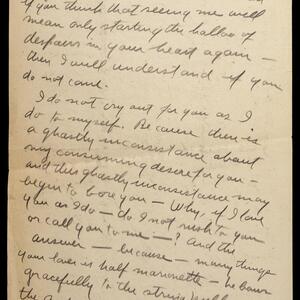 if you think that seeing me will
mean only starting the hallow of
despairs in your heart again –
then I will understand if you
do not come.
I do not cry out for you as I
do to myself. Because there is
a ghastly inconsistance about
my consuming desire for you –
and this ghastly inconsistance may
begin to bore you – Why, if I love
you as I do – do I not rush to you
or call you to me – ? And the
answer – because – many things
your lover is half marionette – he bows
gracefully to the strings